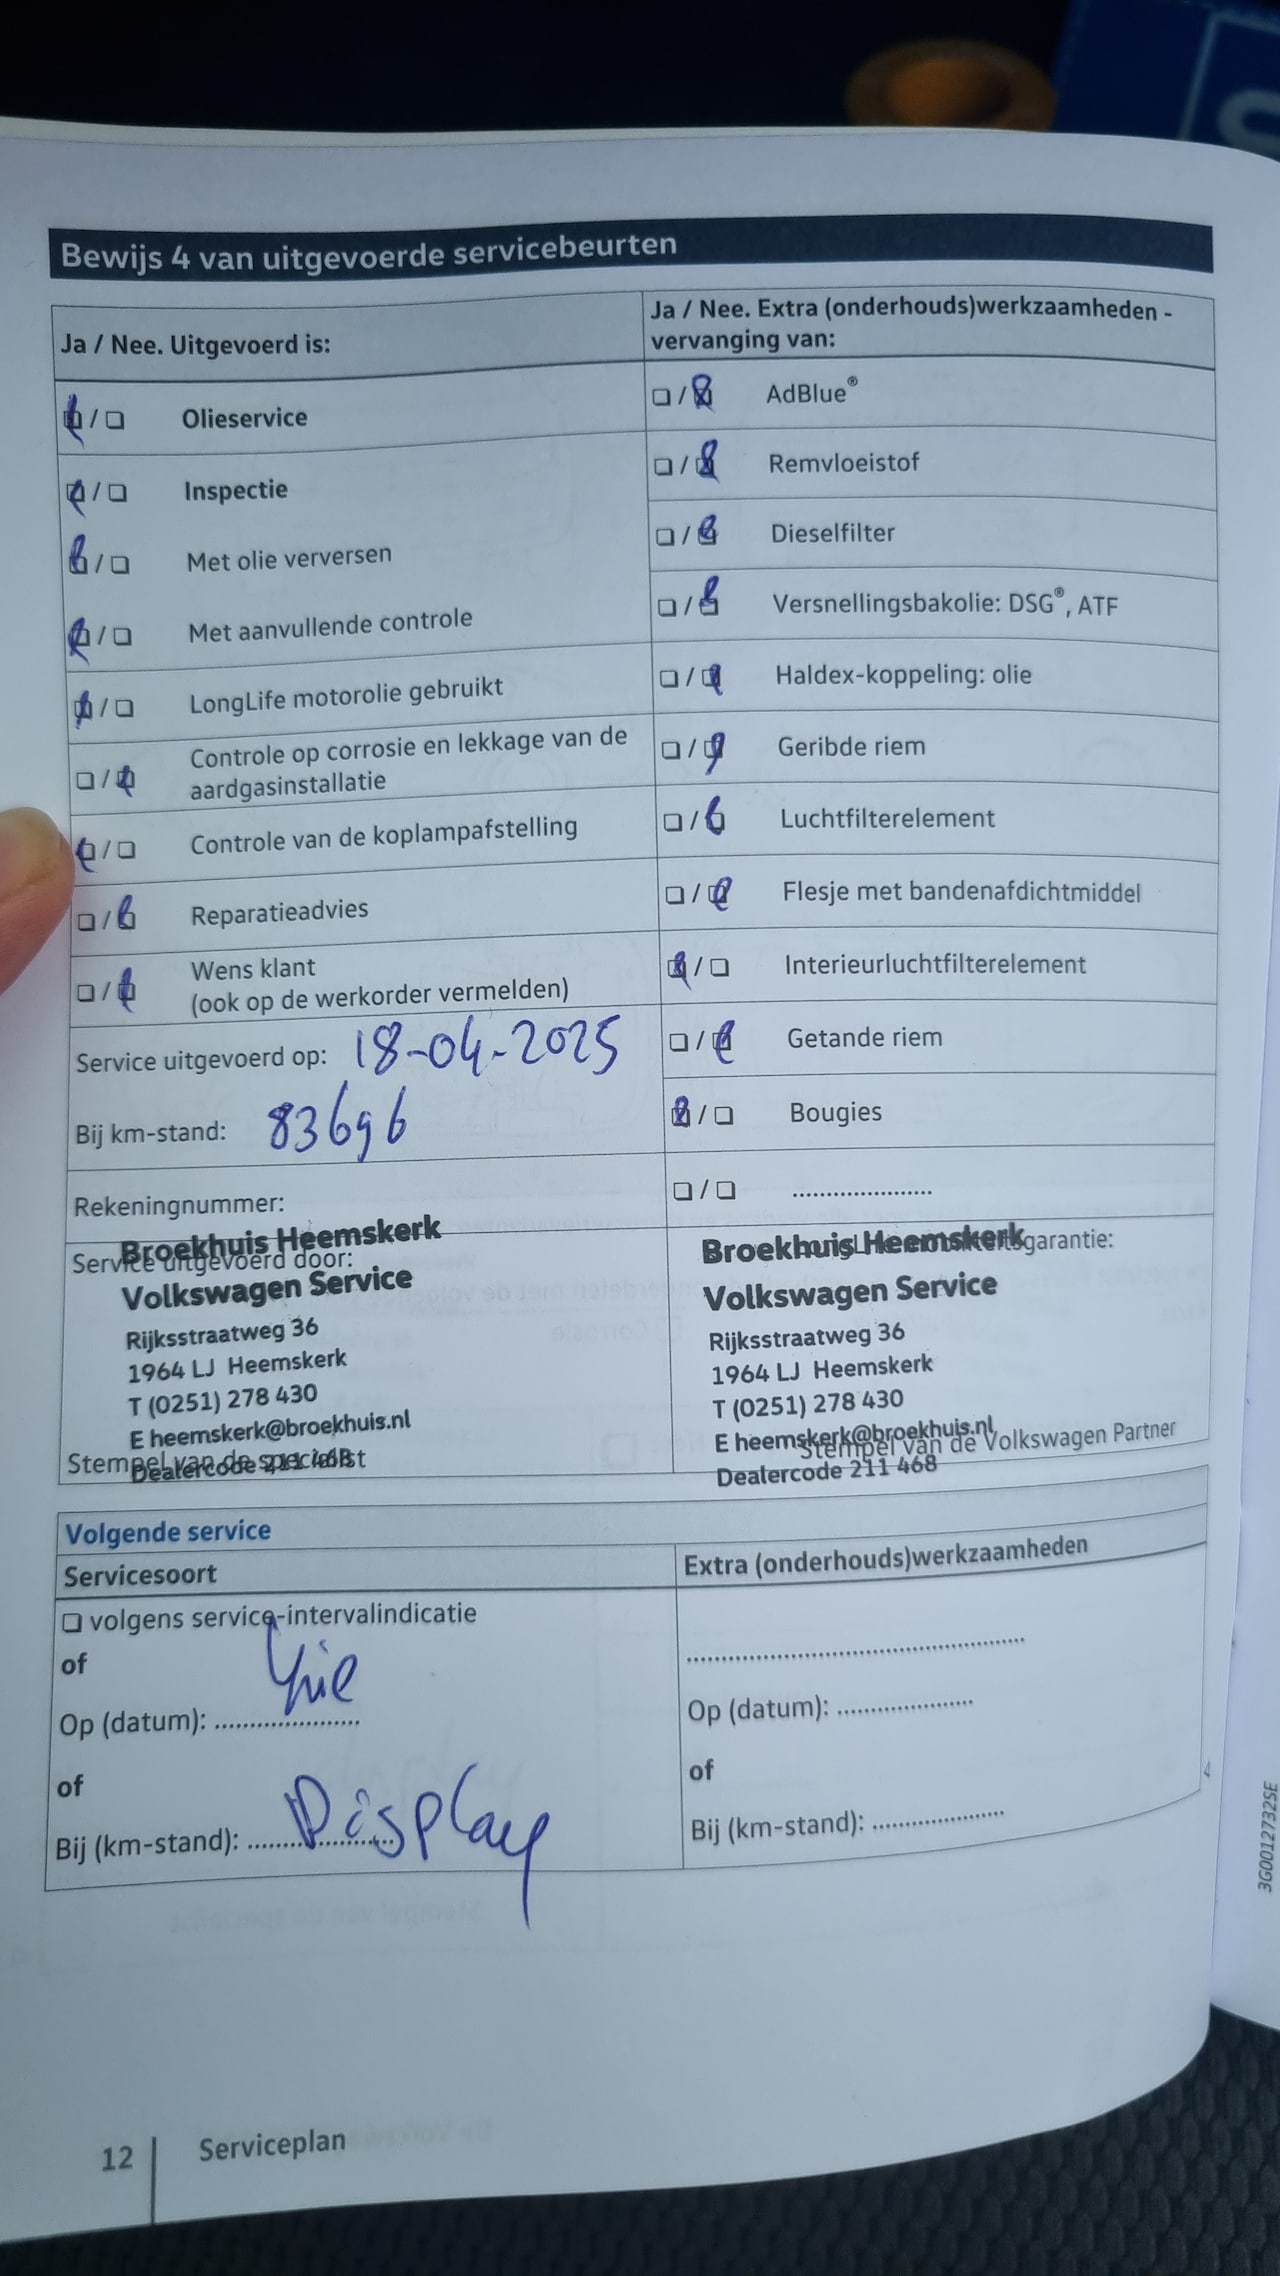 Bewijs 4 van uitgevoerde servicebeurten
Ja / Nee. Uitgevoerd is:
Olieservice
Inspectie
Met olie verversen
Met aanvullende controle
LongLife motorolie gebruikt
Controle op corrosie en lekkage van de
aardgasinstallatie
Controle van de koplampafstelling
Reparatieadvies
Wens klant
(ook op de werkorder vermelden)
Service uitgevoerd op: 18-04-2025
Bij km-stand: 83696
Rekeningnummer:
Service uitgevoerd door:
Broekhuis Heemskerk
Volkswagen Service
Rijksstraatweg 36
1964 LJ Heemskerk
T (0251) 278 430
E heemskerk@broekhuis.nl
Dealercode 211 468
Stempel van de specialist
Ja / Nee. Extra (onderhouds)werkzaamheden -
vervanging van:
AdBlue®
Remvloeistof
Dieselfilter
Versnellingsbakolie: DSG®, ATF
Haldex-koppeling: olie
Geribde riem
Luchtfilterelement
Flesje met bandenafdichtmiddel
Interieurluchtfilterelement
Getande riem
Bougies
.....................
Broekhuis Heemskerk
Volkswagen Service
Rijksstraatweg 36
1964 LJ Heemskerk
T (0251) 278 430
E heemskerk@broekhuis.nl
Dealercode 211 468
Stempel van de Volkswagen Partner
Volgende service
Servicesoort
volgens service-intervalindicatie
of
Op (datum): .....................
of
Bij (km-stand): Display
Extra (onderhouds)werkzaamheden
Op (datum): .....................
of
Bij (km-stand): .....................
12
Serviceplan
3G0012732SE